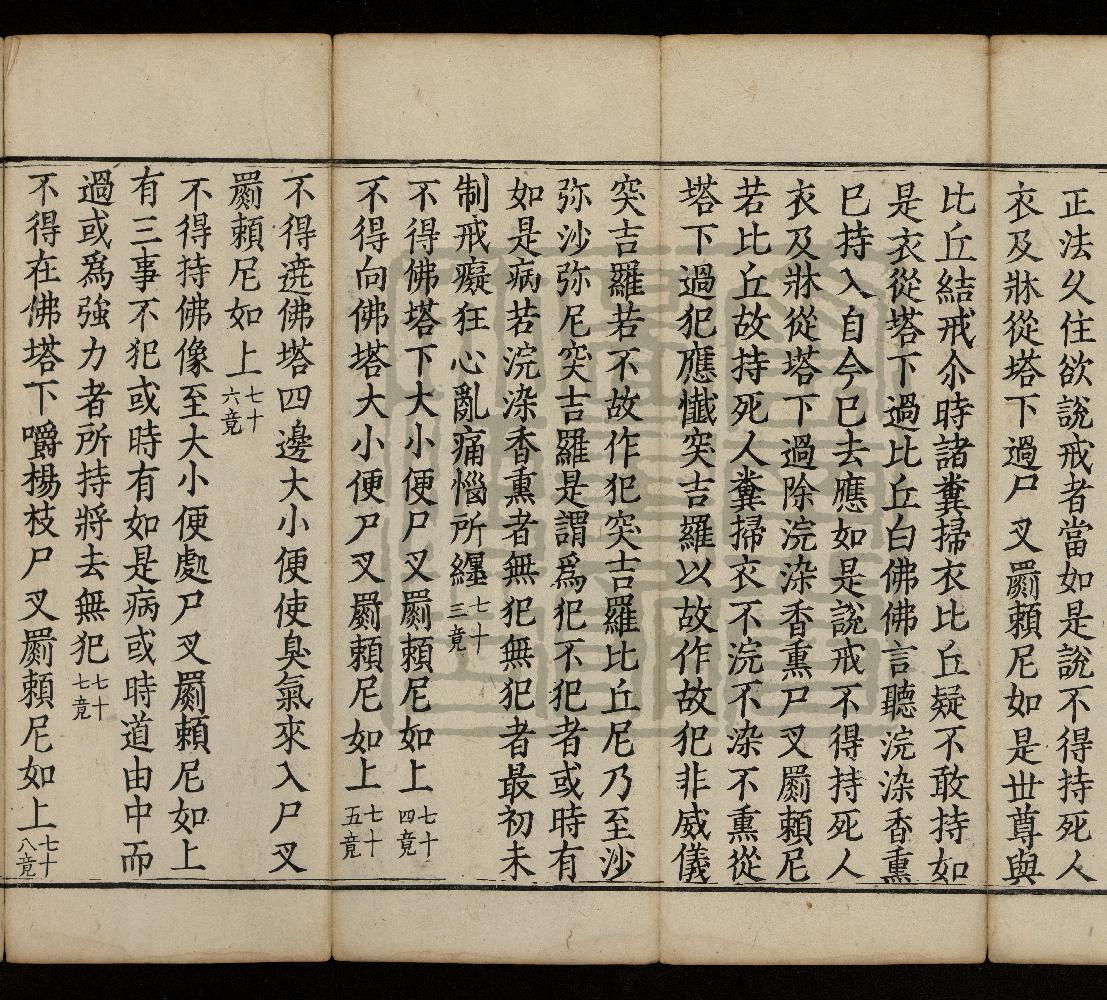 正法久住欲說戒者當如是說不得持死人
衣及牀從塔下過尸叉罽賴尼如是世尊與
比丘結戒尒時諸糞掃衣比丘疑不敢持如
是衣從塔下過比丘白佛佛言聽浣染香熏
巳持入自今巳去應如是說戒不得持死人
衣及牀從塔下過除浣染香熏尸叉罽賴尼
若比丘故持死人糞掃衣不浣不染不熏從
塔下過犯應懺突吉羅以故作故犯非威儀
突吉羅若不故作犯突吉羅比丘尼乃至沙
弥沙弥尼突吉羅是謂爲犯不犯者或時有
如是病若浣染香熏者無犯無犯者最初未
制戒癡狂心亂痛惱所纏七十三竟
不得佛塔下大小便尸叉罽賴尼如上七十四竟
不得向佛塔大小便尸叉罽賴尼如上七十五竟
不得遶佛塔四邊大小便使臭氣來入尸叉
罽賴尼如上七十六竟
不得持佛像至大小便處尸叉罽賴尼如上
有三事不犯或時有如是病或時道由中而
過或爲強力者所持將去無犯七十七竟
不得在佛塔下嚼楊枝尸叉罽賴尼如上七十八竟